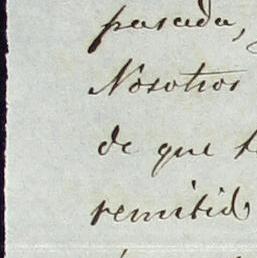 pasada,
Nosotros
de que
remitido